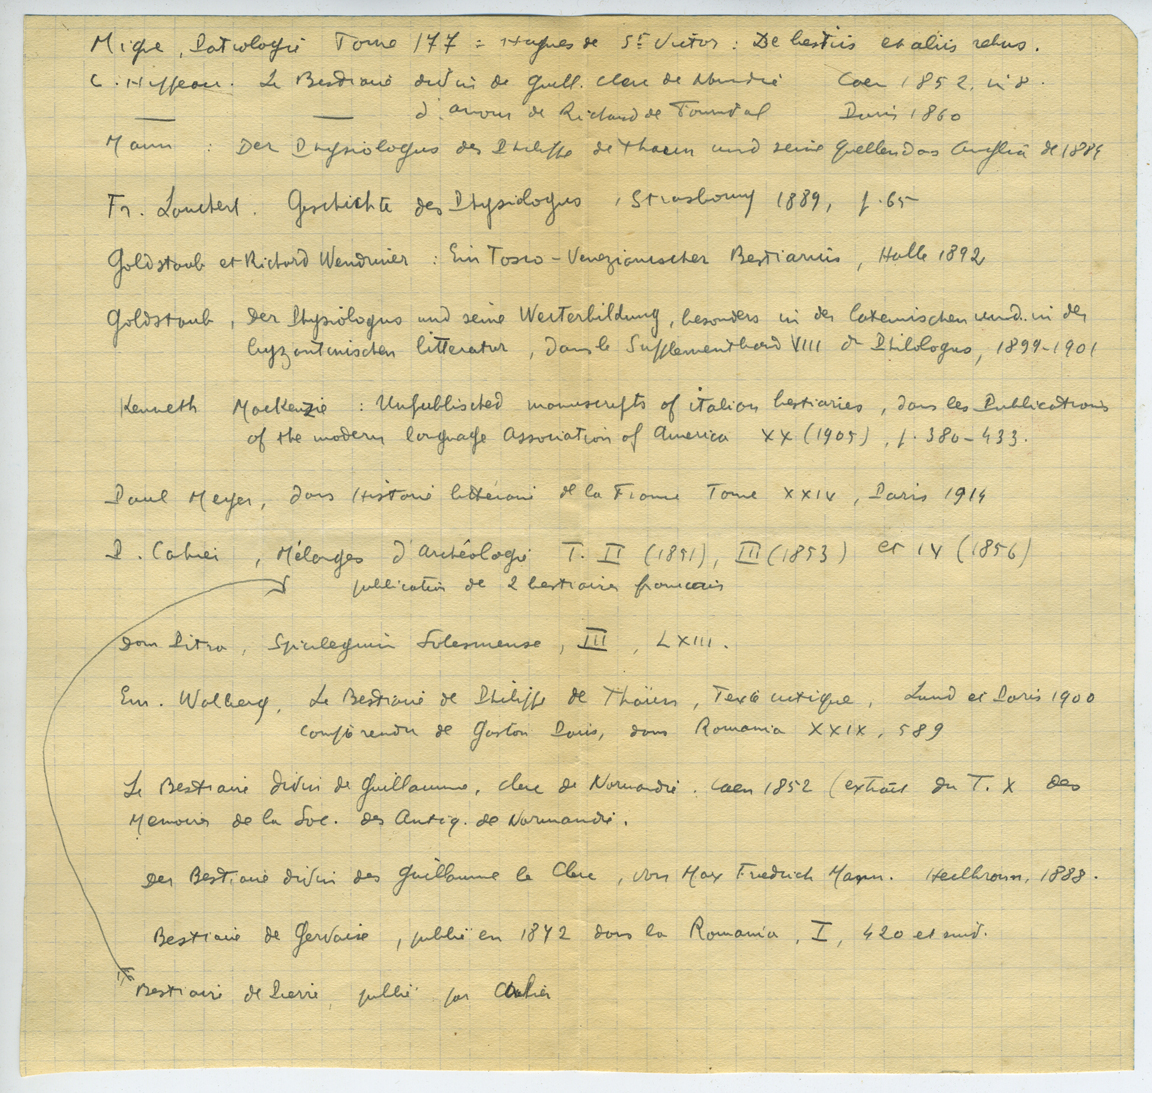 Migne, Patrologie Tome 177 = Hugues de St Victor : De bestiis et aliis rebus.
C. Hippeau. Le Bestiaire divin de Guill. clerc de Normdie Caen 1852. in 8.
— — d'amour de Richard de Fournival Paris 1860
Mann : Der Physiologus des Philippe de Thaün und seine Quellen dans Anglia de 1884
Fr. Lauchert. Geschichte des Physiologus, Strasbourg 1889, p. 65
Goldstaub et Richard Wendriner : Ein Tosco-Venezianischer Bestiarius, Halle 1892
Goldstaub, Der Physiologus und seine Weiterbildung, besonders in der lateinischen und in der
byzantinischen litteratur, dans le Supplementband VIII de Philologus, 1899-1901
Kenneth MacKenzie : Unpublished manuscripts of italian bestiaries, dans les Publications
of the modern language Association of America XX (1905), p. 380-433.
Paul Meyer, dans Histoire littéraire de la France Tome XXIV, Paris 1914
P. Cahier, Mélanges d'Archéologie T. II (1851), III (1853) et IV (1856)
publication de 2 bestiaires francais
dom Pitra, Spicilegium Solesmense, III, LXIII.
Em. Walberg, Le Bestiaire de Philippe de Thaün, Texte critique, Lund et Paris 1900
compte rendu de Gaston Paris, dans Romania XXIX, 589
Le Bestiaire divin de Guillaume, clerc de Normandie. Caen 1852 (extrait du T. X des
Memoires de la Soc. des Antiq. de Normandie.
Der Bestiaire divin des Guillaume le Clerc, von Max Friedrich Mann. Heilbronn, 1888.
Bestiaire de Gervaise, publié en 1872 dans la Romania, I, 420 et suiv.
Bestiaire de Pierre publié par Cahier